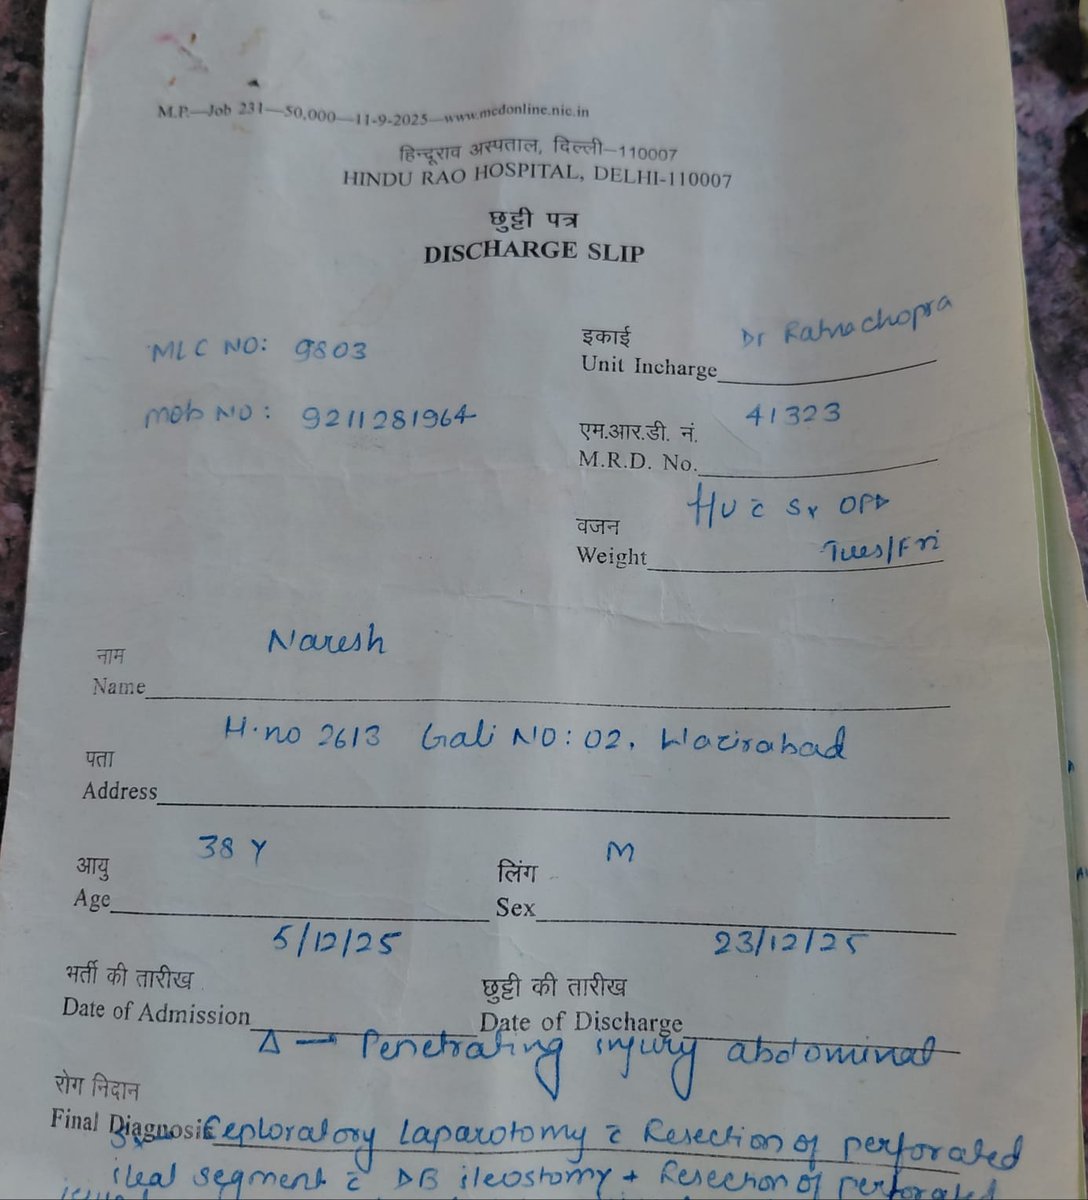 M.P.—Job 231—50,000—11-9-2025—www.mcdonline.nic.in
हिन्दूराव अस्पताल, दिल्ली–110007
HINDU RAO HOSPITAL, DELHI-110007
छुट्टी पत्र
DISCHARGE SLIP
MLC NO: 9803
mob NO: 9211281964
इकाई
Unit Incharge Dr Ratna Chopra
एम.आर.डी. नं.
M.R.D. No. 41323
वजन
Weight
c̄ Sx OPD
Tues/Fri
नाम
Name Naresh
पता
Address H.no 2613 Gali NO: 02, Wazirabad
आयु
Age 38 Y
लिंग
Sex M
भर्ती की तारीख
Date of Admission 5/12/25
छुट्टी की तारीख
Date of Discharge 23/12/25
Δ — Penetrating injury abdominal
रोग निदान
Final Diagnosis Exploratory Laparotomy c̄ Resection of perforated
ileal segment c̄ DB ileostomy + Resection of perforated